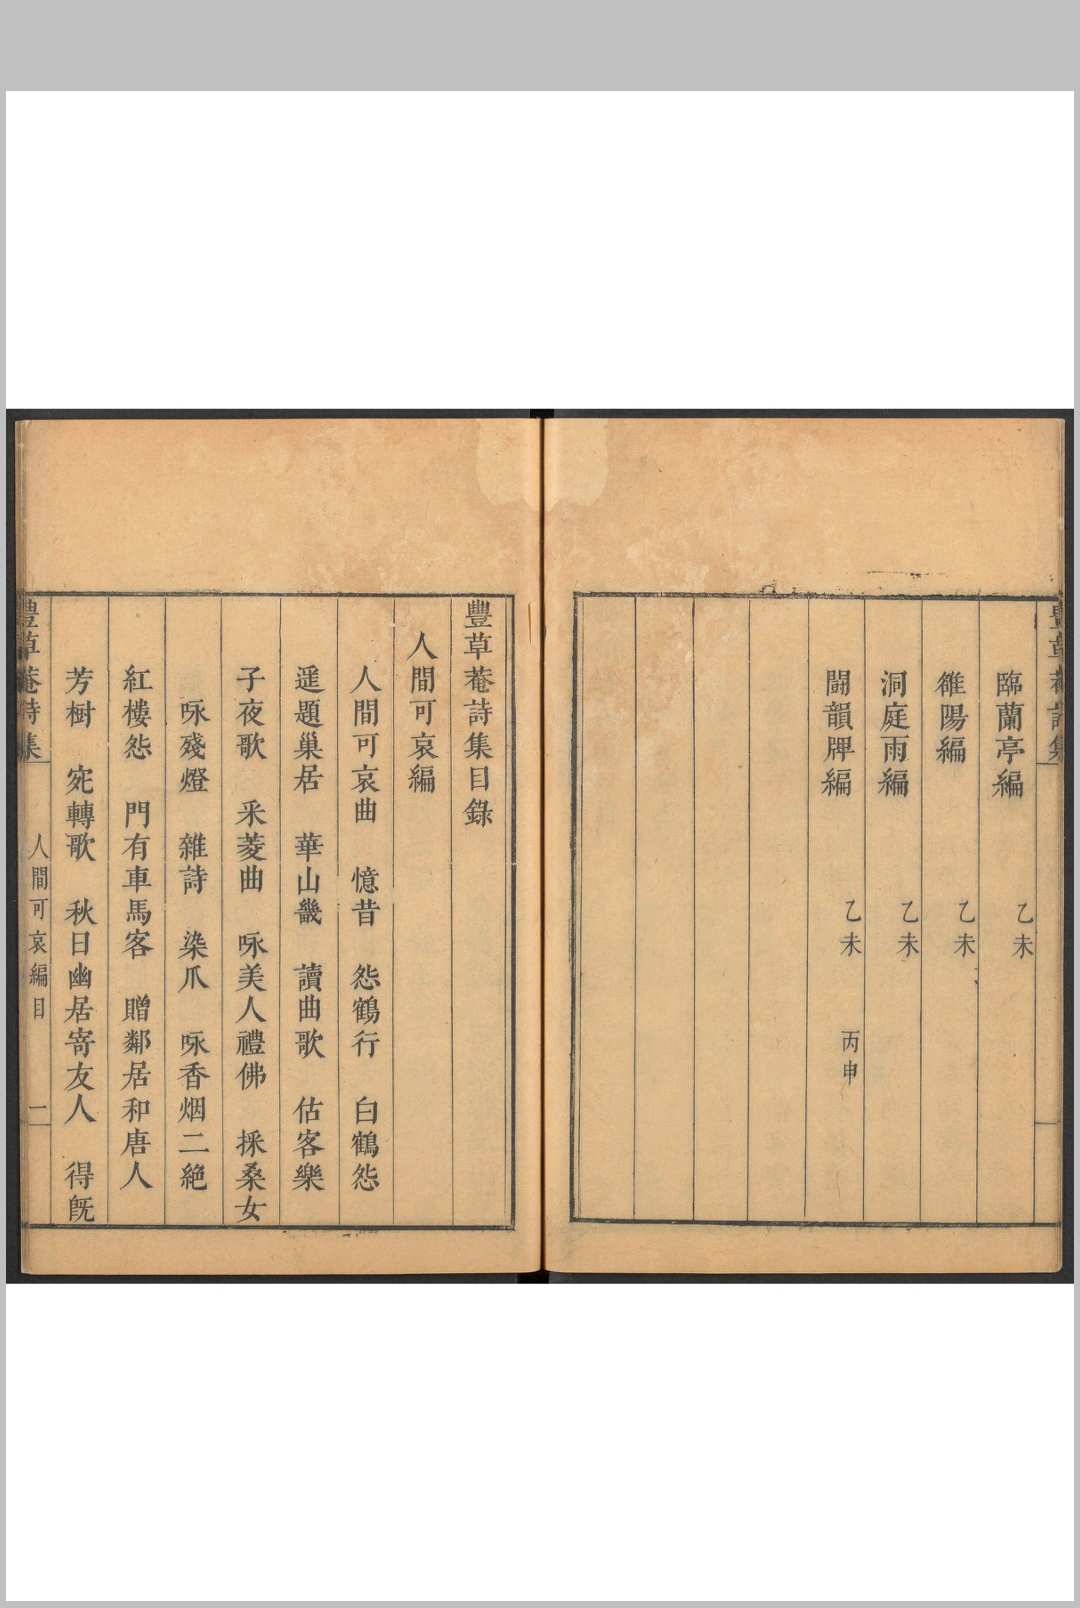 豐草菴詩集
臨蘭亭編 乙未
雒陽編 乙未
洞庭雨編 乙未
鬭韻牌編 乙未 丙申
豐草菴詩集目錄
人間可哀編
人間可哀曲 憶昔 怨鶴行 白鶴怨
遥題巢居 華山畿 讀曲歌 估客樂
子夜歌 采菱曲 咏美人禮佛 採桑女
咏殘燈 雜詩 染爪 咏香烟二絶
紅樓怨 門有車馬客 贈鄰居和唐人
芳樹 宛轉歌 秋日幽居寄友人 得旣
豐草菴詩集 人間可哀編目 二